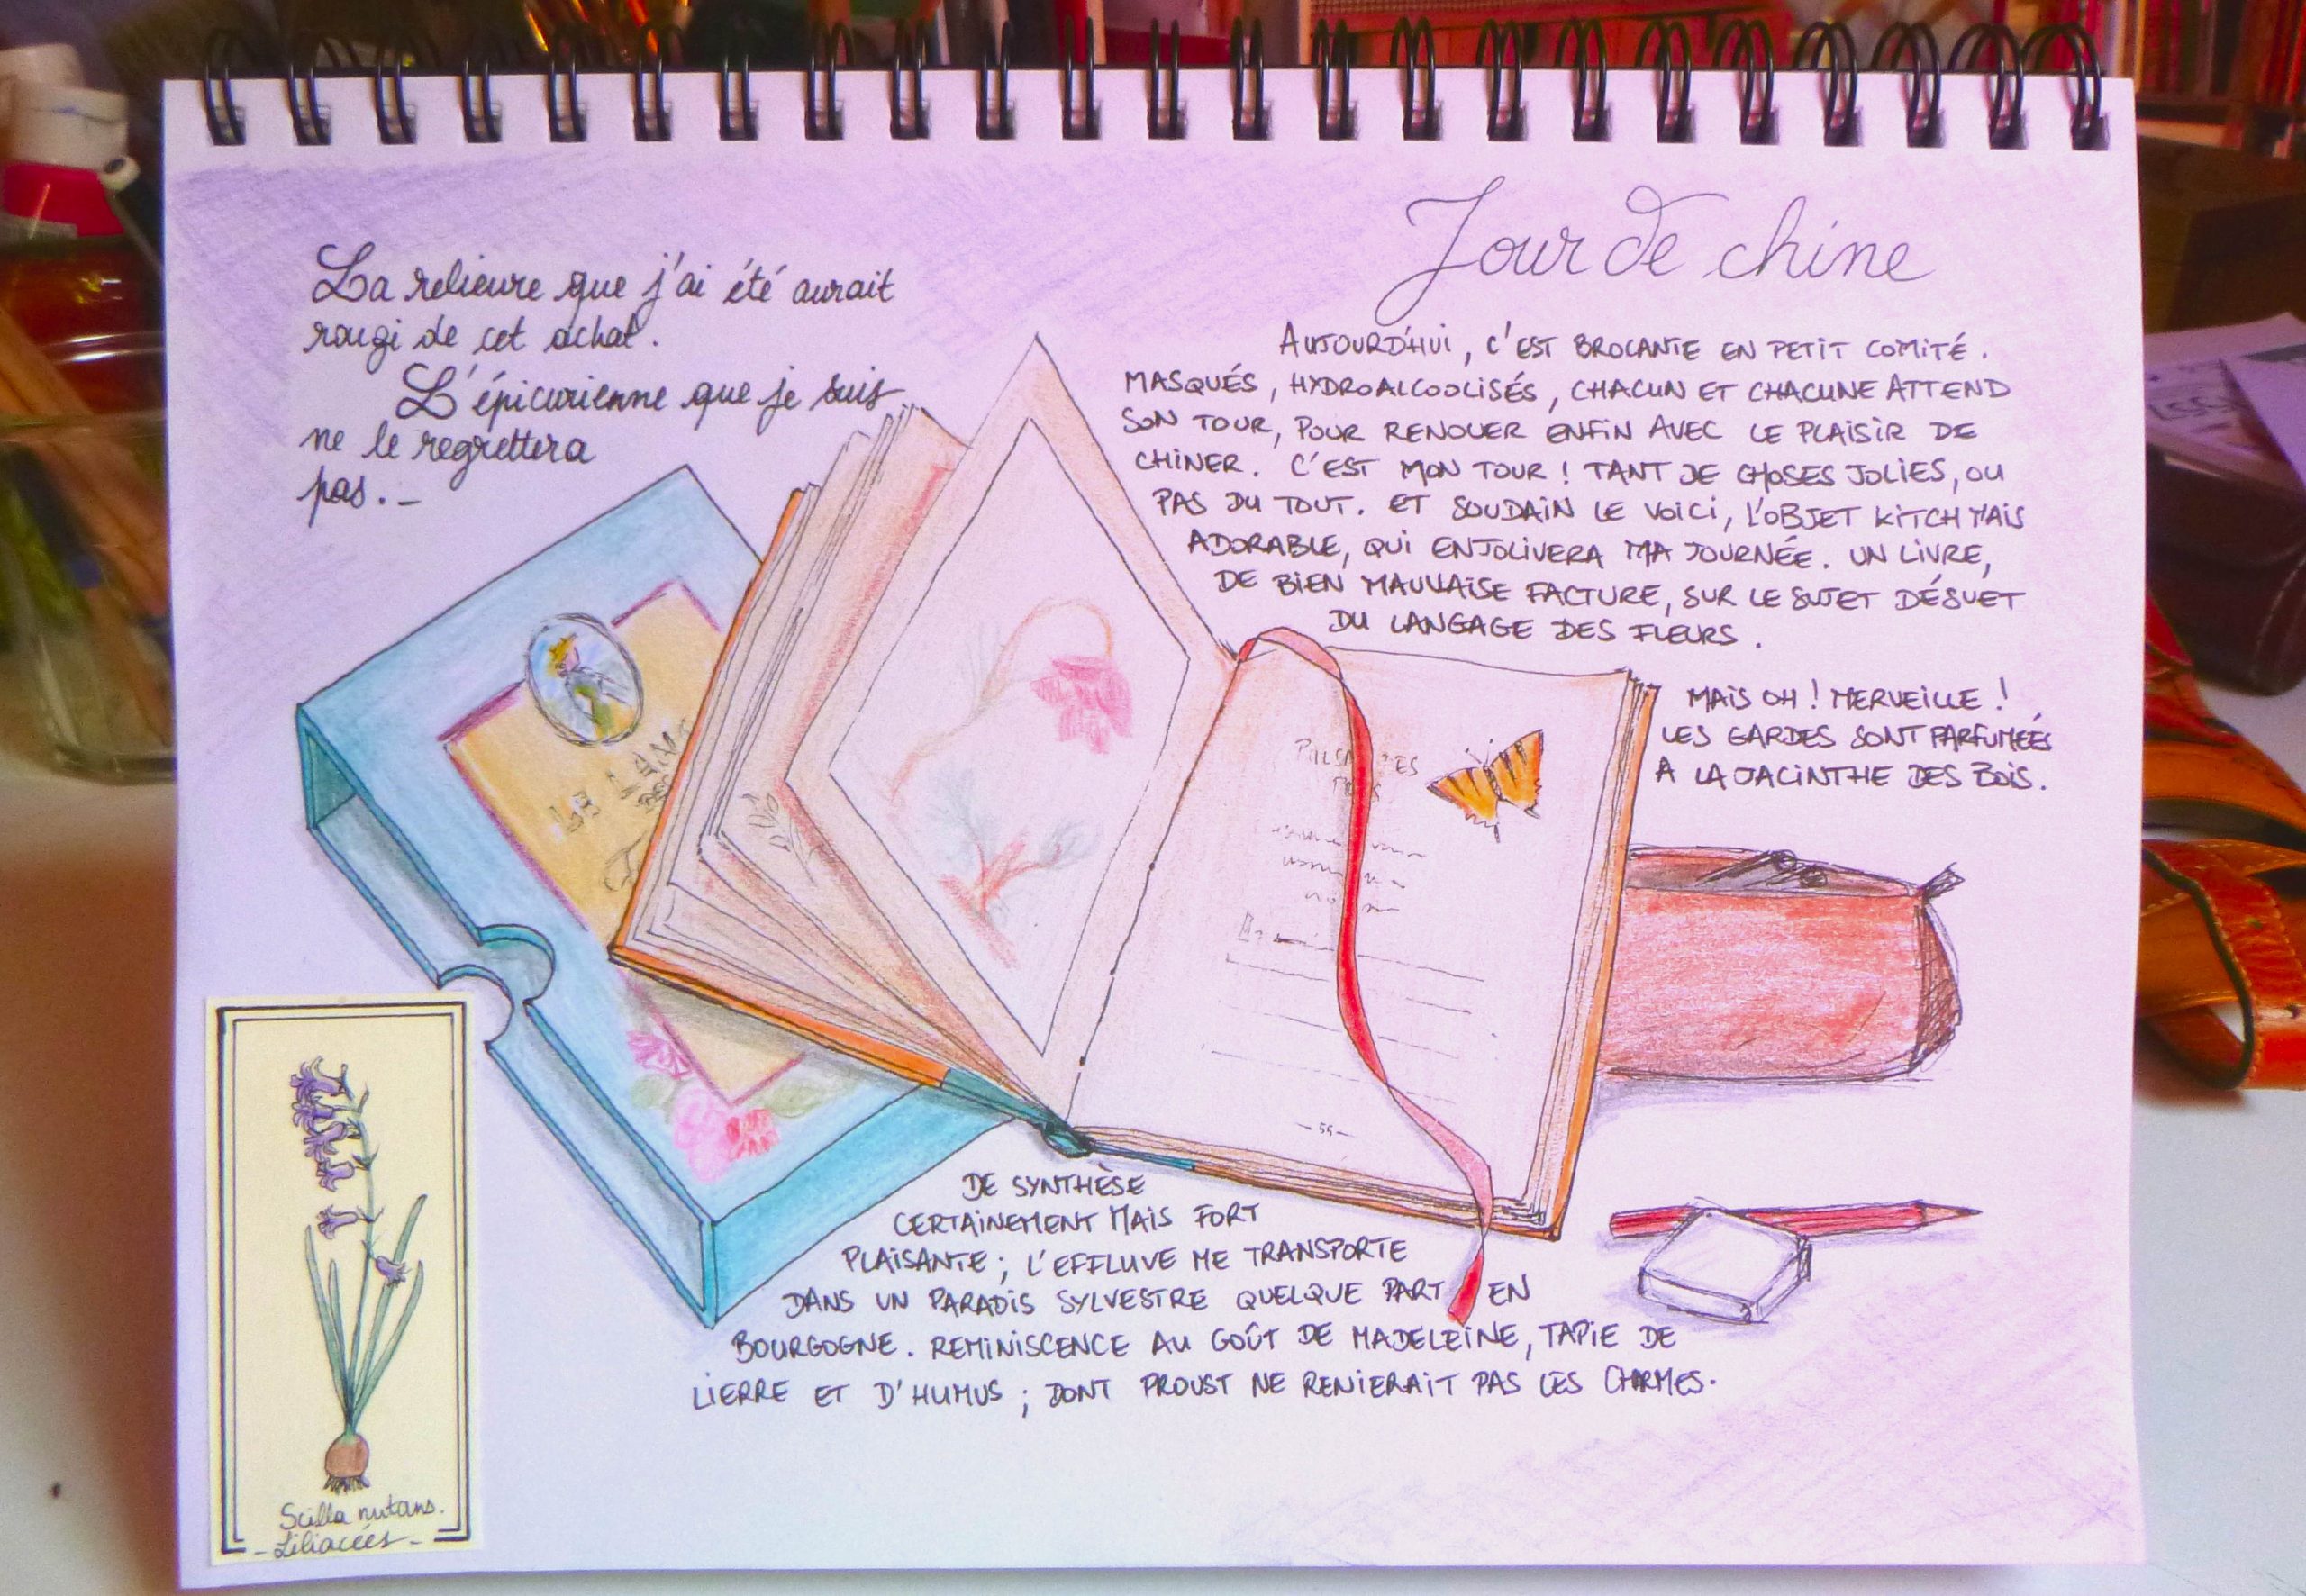 Jour de chine
La relieure que j'ai été aurait
rougi de cet achat.
L'épicurienne que je suis
ne le regrettera
pas._
AUJOURD'HUI, C'EST BROCANTE EN PETIT COMITÉ.
MASQUÉS, HYDROALCOOLISÉS, CHACUN ET CHACUNE ATTEND
SON TOUR, POUR RENOUER ENFIN AVEC LE PLAISIR DE
CHINER. C'EST MON TOUR ! TANT DE CHOSES JOLIES, OU
PAS DU TOUT. ET SOUDAIN LE VOICI, L'OBJET KITCH MAIS
ADORABLE, QUI ENJOLIVERA MA JOURNÉE. UN LIVRE,
DE BIEN MAUVAISE FACTURE, SUR LE SUJET DÉSUET
DU LANGAGE DES FLEURS.
MAIS OH ! MERVEILLE !
LES GARDES SONT PARFUMÉES
A LA JACINTHE DES BOIS.
DE SYNTHÈSE
CERTAINEMENT MAIS FORT
PLAISANTE ; L'EFFLUVE ME TRANSPORTE
DANS UN PARADIS SYLVESTRE QUELQUE PART EN
BOURGOGNE. REMINISCENCE AU GOÛT DE MADELEINE, TAPIE DE
LIERRE ET D'HUMUS ; DONT PROUST NE RENIERAIT PAS LES CHARMES.
- 55 -
Scilla nutans.
- Liliacées -